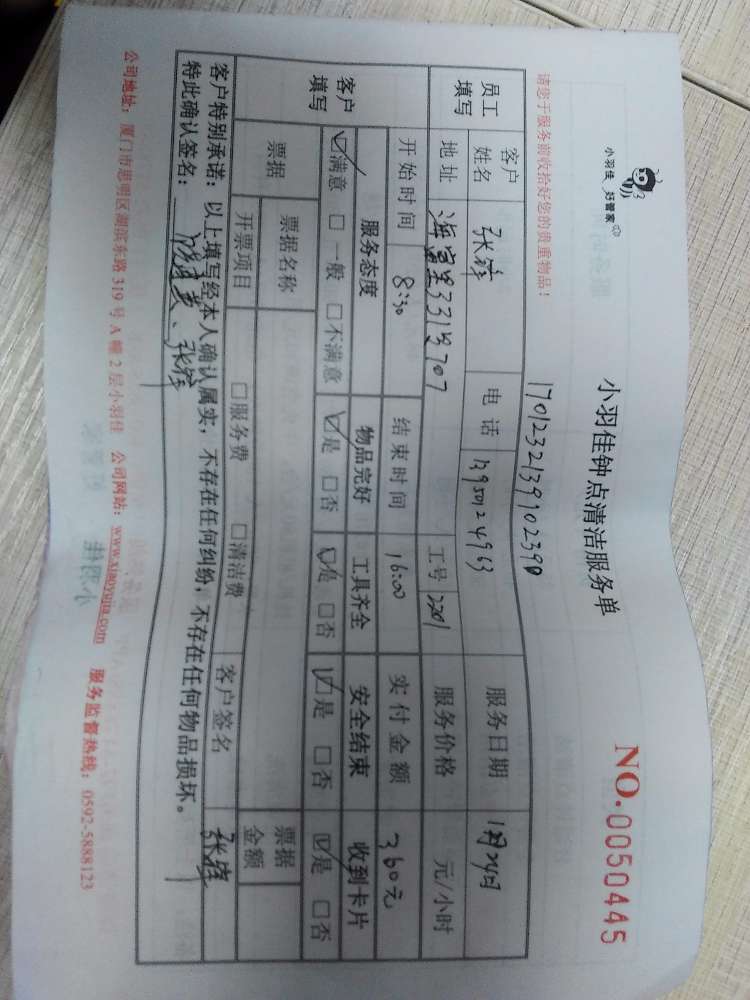 小羽佳 好管家
小羽佳钟点清洁服务单
NO.0050445
请您于服务前收拾好您的贵重物品！
1701232139102390
员工填写 客户姓名 张锋 电话 服务日期 1月24日
地址 331号707 工号 2201 服务价格 元/小时
开始时间 8:30 结束时间 16:00 实付金额 360元
客户填写 服务态度 物品完好 工具齐全 安全结束 收到卡片
☑满意 □一般 □不满意 ☑是 □否 ☑是 □否 ☑是 □否 ☑是 □否
票据 票据名称 票据金额
开票项目 □服务费 □清洁费 客户签名 张锋
客户特别承诺：以上填写经本人确认属实，不存在任何纠纷，不存在任何物品损坏。
特此确认签名： 张锋
公司地址：厦门市思明区湖滨东路319号A幢2层小羽佳 公司网站：www.xiaoyujia.com 服务监督热线：0592-5888123